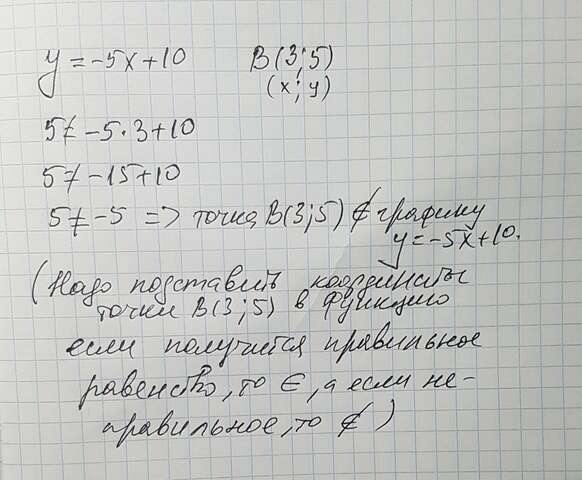 y = -5x+10 B(3;5)
(x; y)
5 ≠ -5·3+10
5 ≠ -15+10
5 ≠ -5 => точка B(3;5) ∉ графику
y = -5x+10.
(Надо подставить координаты
точки B(3;5) в функцию
если получится правильное
равенство, то ∈, а если не-
правильное, то ∉)